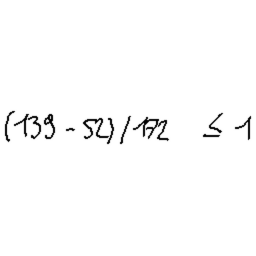 (139 - 52) / 172 ≤ 1